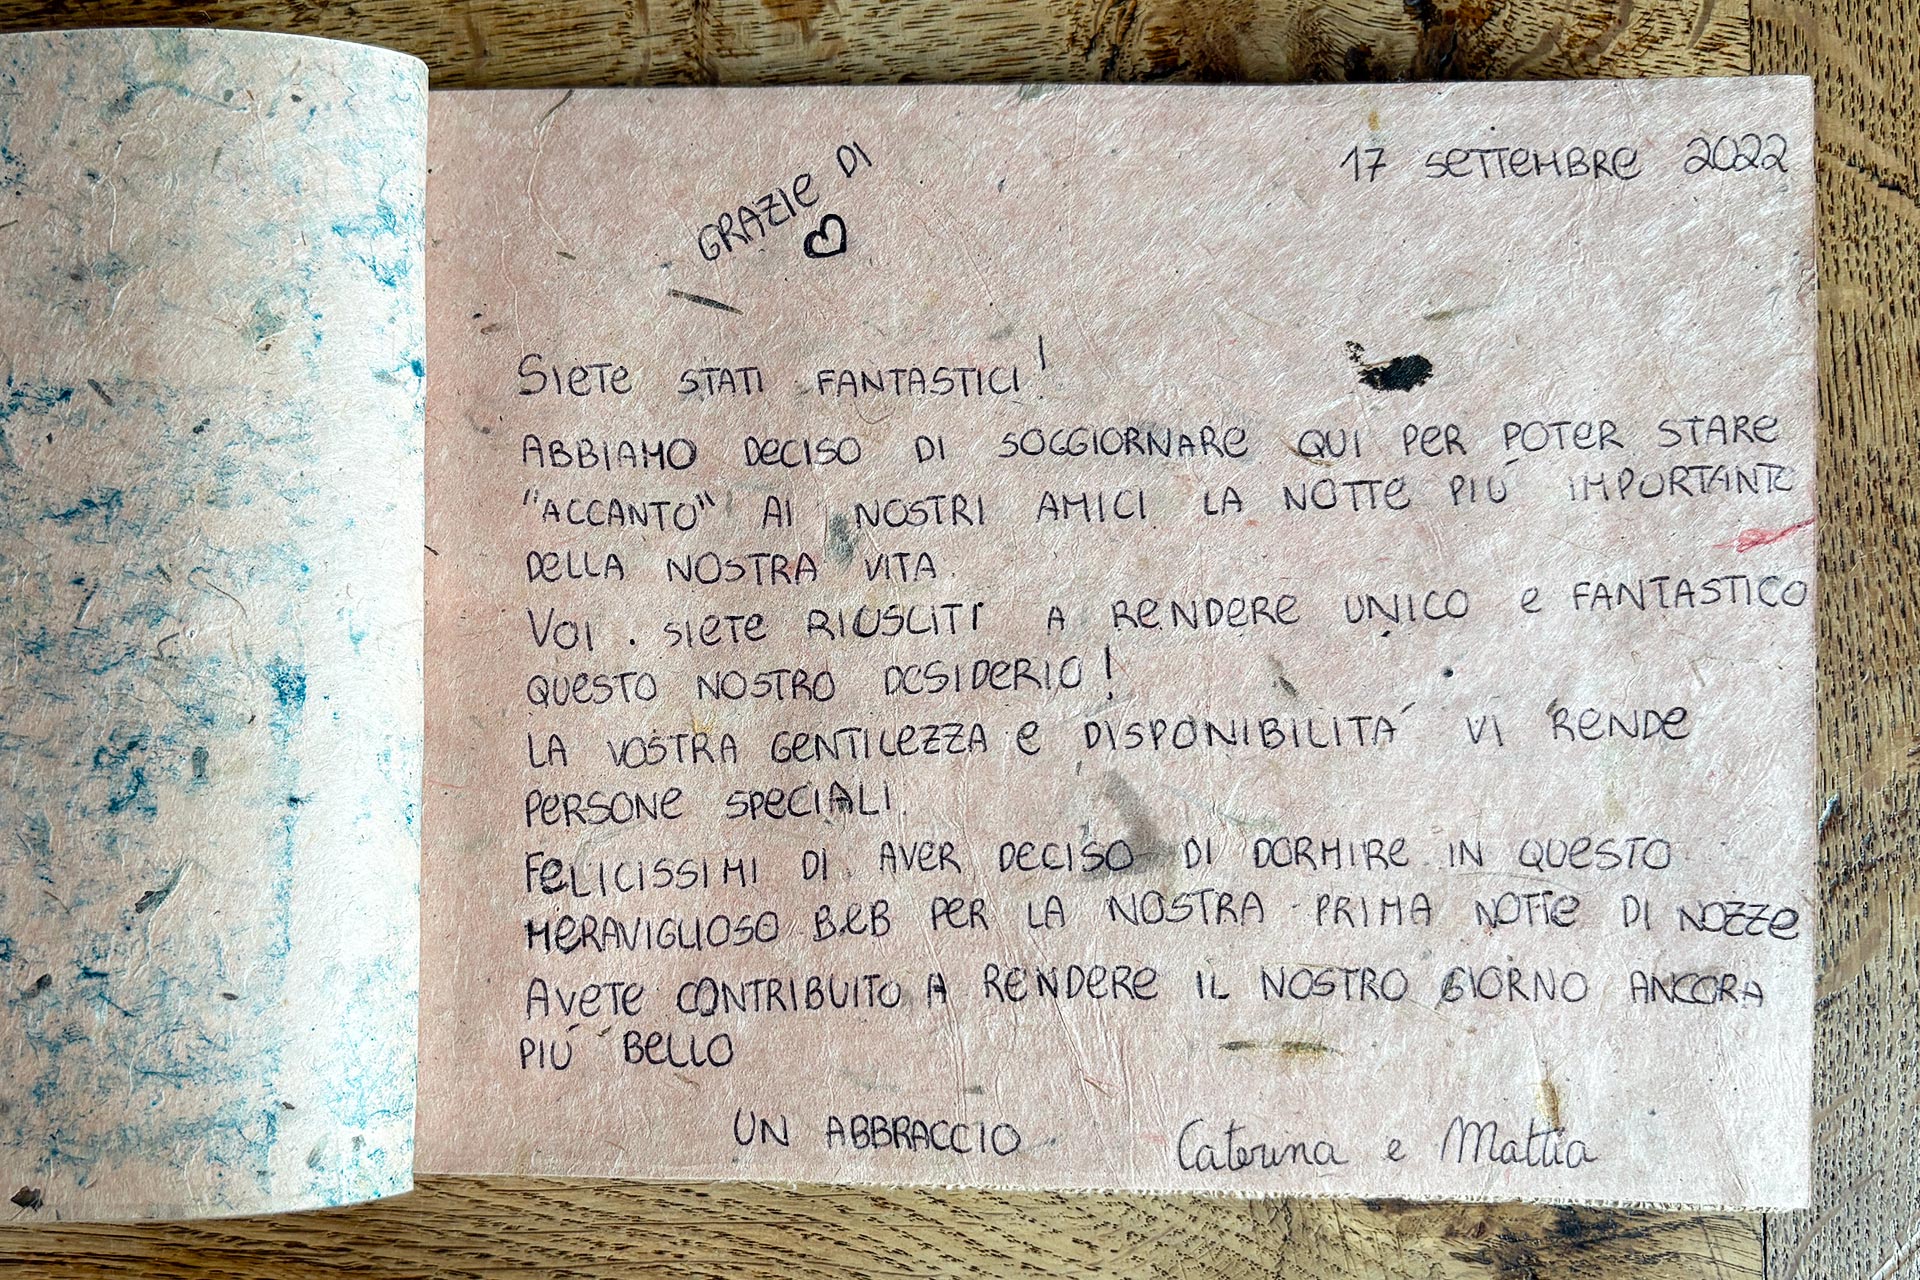 17 SETTEMBRE 2022
GRAZIE DI
♡
SIETE STATI FANTASTICI!
ABBIAMO DECISO DI SOGGIORNARE QUI PER POTER STARE
"ACCANTO" AI NOSTRI AMICI LA NOTTE PIÚ IMPORTANTE
DELLA NOSTRA VITA.
VOI. SIETE RIUSCITI A RENDERE UNICO E FANTASTICO
QUESTO NOSTRO DESIDERIO!
LA VOSTRA GENTILEZZA E DISPONIBILITÁ VI RENDE
PERSONE SPECIALI.
FELICISSIMI DI AVER DECISO DI DORMIRE IN QUESTO
MERAVIGLIOSO BEB PER LA NOSTRA PRIMA NOTTE DI NOZZE
AVETE CONTRIBUITO A RENDERE IL NOSTRO GIORNO ANCORA
PIÚ BELLO
UN ABBRACCIO Caterina e Mattia